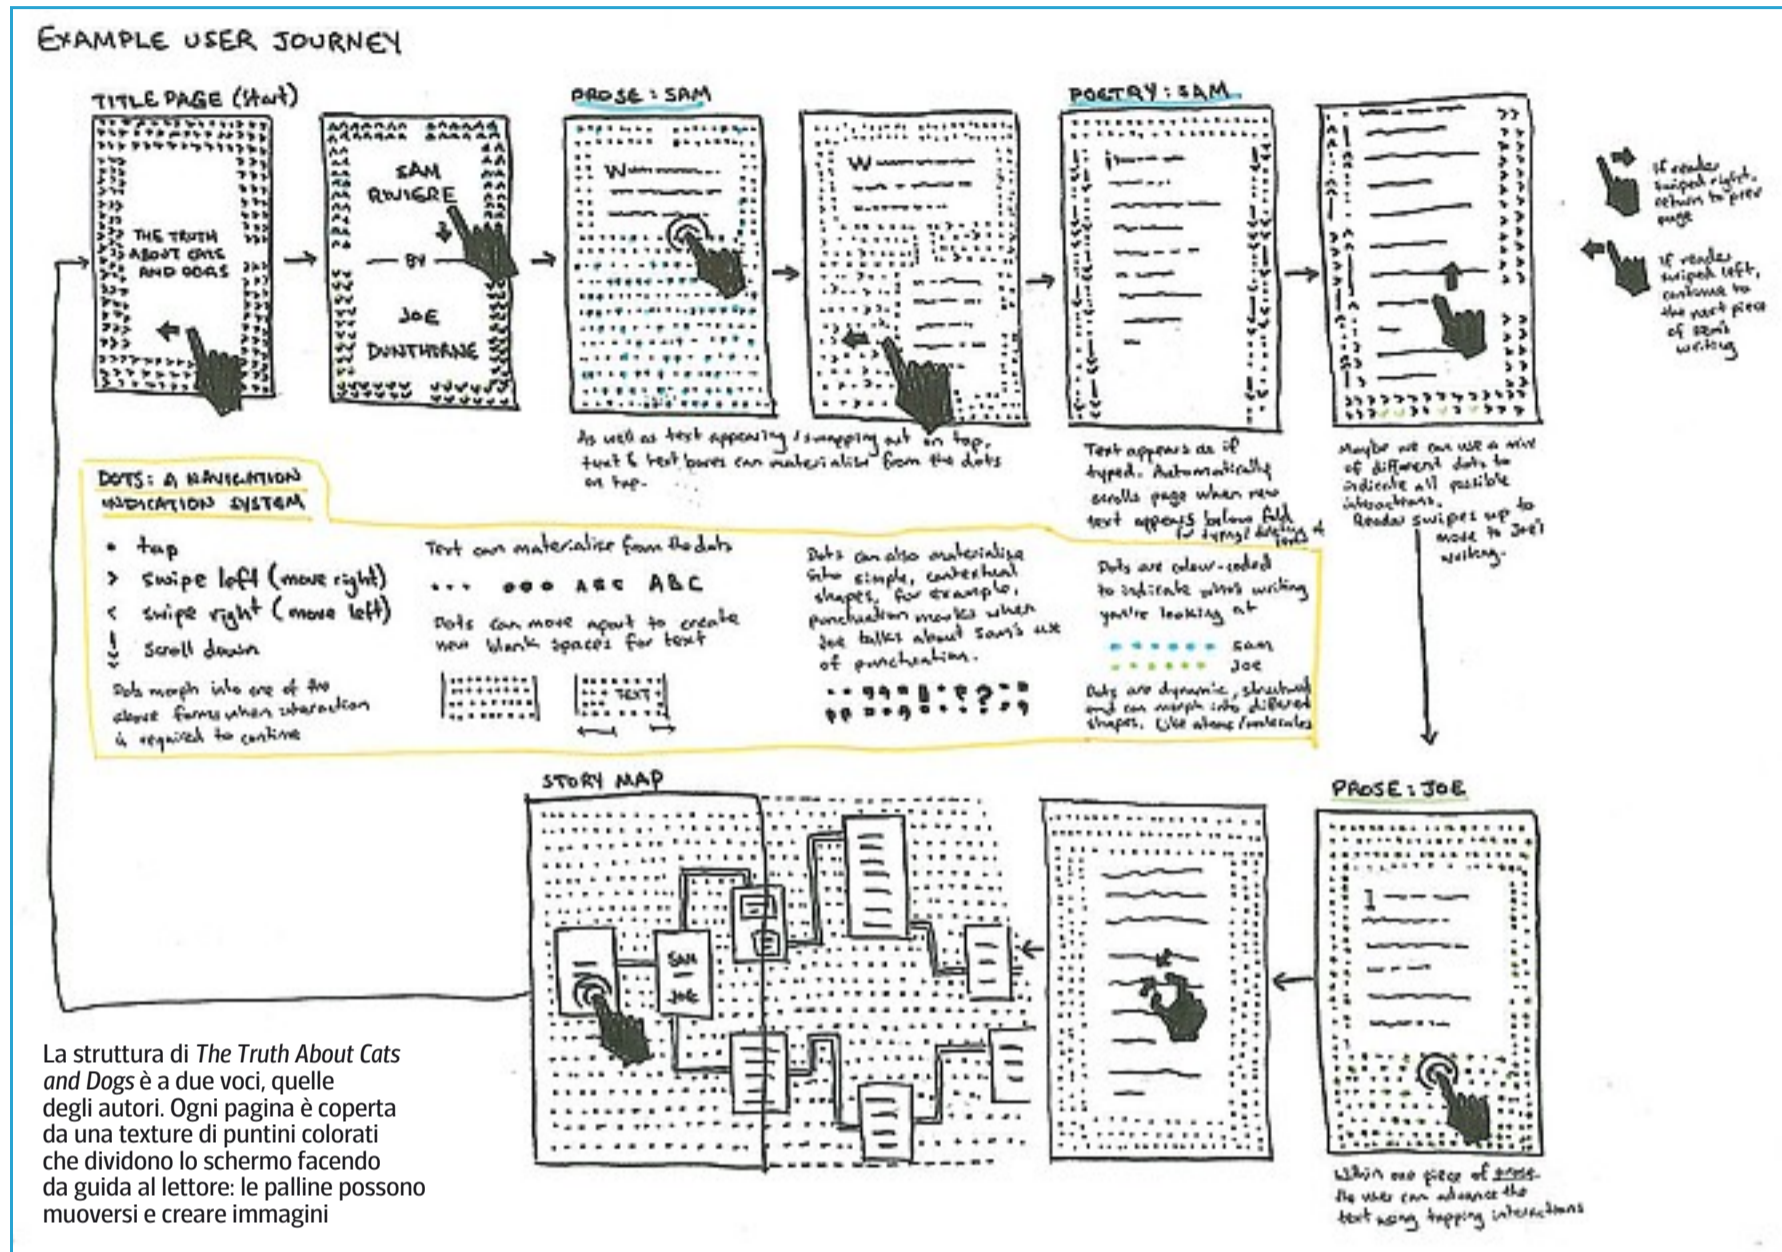 EXAMPLE USER JOURNEY
TITLE PAGE (Start)
THE TRUTH
ABOUT CATS
AND DOGS
SAM
RIVIERE
BY
JOE
DUNTHORNE
PROSE: SAM
W
W
As well as text appearing / swapping out on tap,
text & text boxes can materialise from the dots
on tap.
POETRY: SAM
Text appears as if
typed. Automatically
scrolls page when new
text appears below fold
for typing
Maybe we can use a mix
of different dots to
indicate all possible
interactions.
Reader swipes up to
move to Joe's
writing.
If reader
swiped right,
return to prev
page
If reader
swiped left,
continue to
the next piece
of Sam's
writing
DOTS: A NAVIGATION
INDICATION SYSTEM
• tap
> swipe left (move right)
< swipe right (move left)
scroll down
Dots morph into one of the
above forms when interaction
is required to continue
Text can materialise from the dots
ABC ABC
Dots can move apart to create
new blank spaces for text
TEXT
Dots can also materialise
into simple, contextual
shapes, for example,
punctuation marks when
Joe talks about Sam's use
of punctuation.
Dots are colour-coded
to indicate who's writing
you're looking at
Sam
Joe
Dots are dynamic, structural
and can morph into different
shapes. Like atoms/molecules
STORY MAP
SAM
JOE
PROSE: JOE
Within one piece of prose
the user can advance the
text using tapping interactions
La struttura di The Truth About Cats
and Dogs è a due voci, quelle
degli autori. Ogni pagina è coperta
da una texture di puntini colorati
che dividono lo schermo facendo
da guida al lettore: le palline possono
muoversi e creare immagini